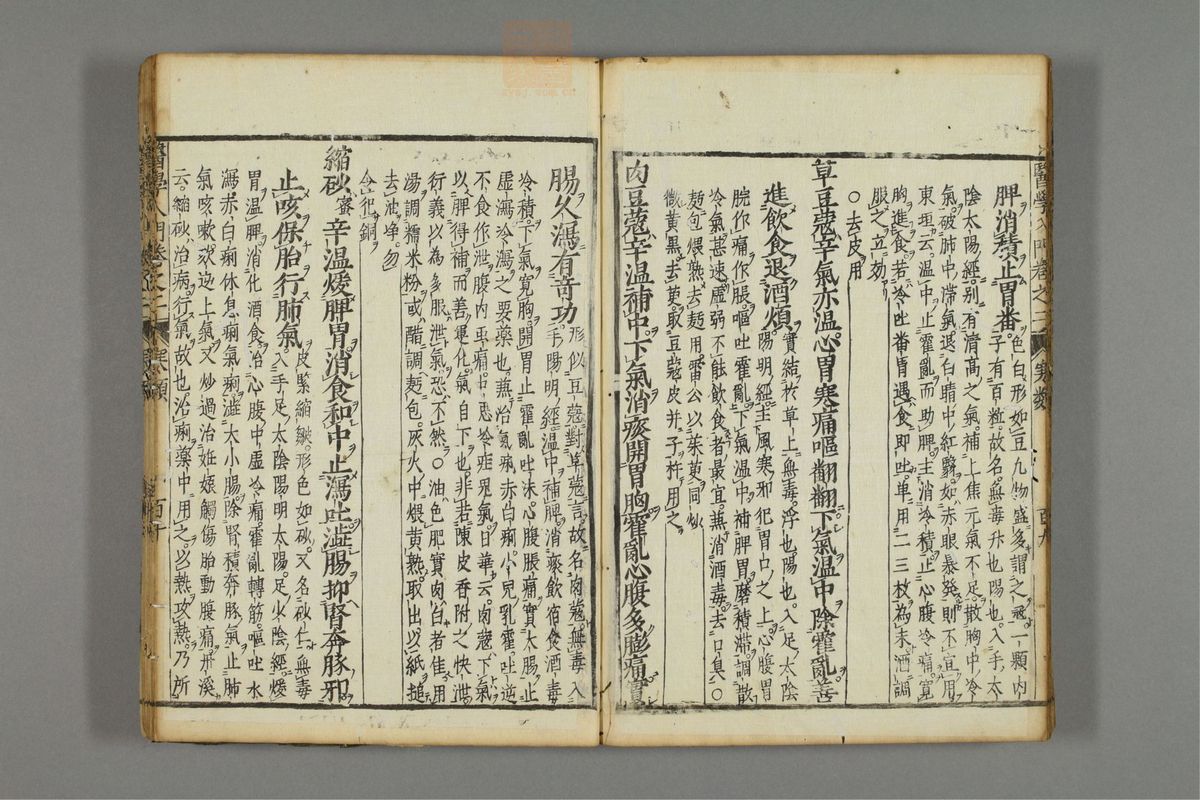 脾消積止胃番 色白形如豆九物盛多謂之蔻一顆内
子有百粒故名無毒升也陽也入手太
陰太陽經別有清髙之氣補上焦元氣不足散胸中冷
氣破肺中滯氣退白睛中紅翳如赤眼暴發則不宜用
東垣云温中止霍亂而助脾主消冷積止心腹冷痛寛
胸進食若冷吐番胃遇食即吐單用二三枚為末酒調
服之立効
○去皮用
草豆蔻辛氣亦温心胃寒痛嘔翻翻下氣温中除霍亂善
進飲食退酒煩 實結於草上無毒浮也陽也入足太陰
陽明經主風寒邪犯胃口之上心腹胃
脘作痛作脹嘔吐霍亂下氣温中補脾胃磨積滯調散
冷氣甚速虚弱不能飲食者最宜蒸消酒毒去口臭○
麺包煨熟去麺用雷公以茱萸同炒
微黄黒去萸取豆蔻皮并子杵用之
肉豆蔻辛温補中下氣消痰開胃胸霍亂心腹多膨痛實
腸久瀉有奇功 形似豆蔻對草蔻言故名肉蔻無毒入
手陽明經温中補脾消痰飲宿食酒毒
冷積下氣寛胸開胃止霍亂吐沫心腹脹痛實大腸止
虚瀉冷瀉之要藥也蒸治氣痢赤白痢小兒乳霍吐逆
不食作泄腹内虫痛
以脾得補而善運化氣自下也非若陳皮香附之快泄
衍義以為多服泄氣恐不然○油色肥實肉白者佳用
湯調糯米粉或醋調麪包灰火中煨黄熟取出以紙搥
去油淨勿
令犯銅
縮砂蜜辛温煖脾胃消食和中止瀉吐澁腸抑腎奔豚邪
止咳保胎行肺氣 皮緊縮皺形色如砂又名砂仁無毒
入手足太陰陽明太陽足少陰經煖
胃温脾消化酒食治心腹中虚冷痛霍亂轉筋嘔吐水
瀉赤白痢休息痢氣痢澁大小腸除腎積奔豚氣止肺
氣咳嗽欬逆上氣又炒過治妊娠觸傷胎動腹痛丹溪
云縮砂治病行氣故也治痢藥中用之以熱攻熱乃所